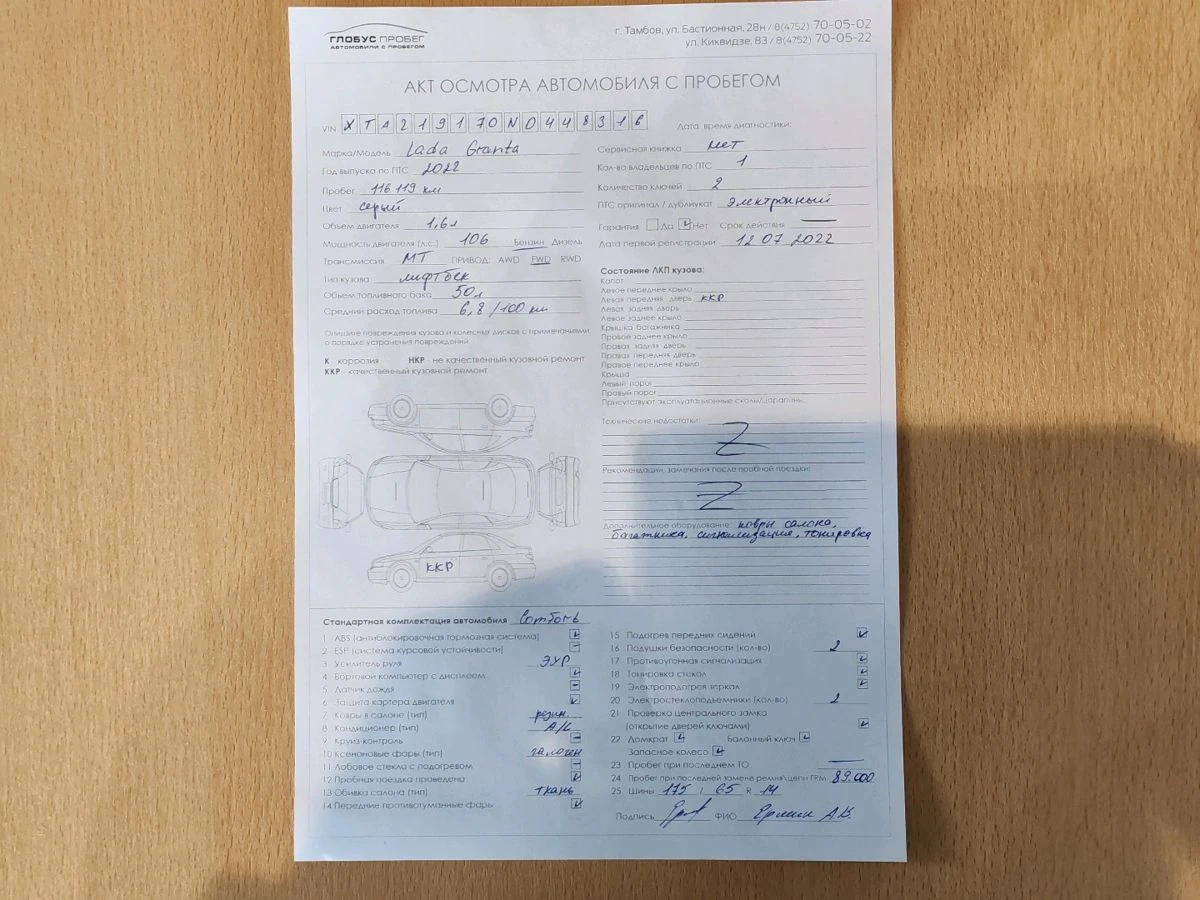 ГЛОБУС ПРОБЕГ
АВТОМОБИЛИ С ПРОБЕГОМ
г. Тамбов, ул. Бастионная, 28н / 8(4752) 70-05-02
ул. Киквидзе, 83 / 8(4752) 70-05-22
АКТ ОСМОТРА АВТОМОБИЛЯ С ПРОБЕГОМ
VIN XTA219170ND448316
Дата, время диагностики:
Марка/Модель Lada Granta
Год выпуска по ПТС 2022
Пробег 116 119 км
Цвет серый
Объем двигателя 1,6л
Мощность двигателя (л.с.) 106 Бензин Дизель
Трансмиссия МТ ПРИВОД: AWD FWD RWD
Тип кузова лифтбек
Объем топливного бака 50л
Средний расход топлива 6,8/100 км
Опишите повреждения кузова и колесных дисков с примечаниями
о порядке устранения повреждений.
К - коррозия НКР - не качественный кузовной ремонт
ККР - качественный кузовной ремонт
ККР
Сервисная книжка нет
Кол-во владельцев по ПТС 1
Количество ключей 2
ПТС оригинал / дубликат электронный
Гарантия Да Нет Срок действия —
Дата первой регистрации 12 07 2022
Состояние ЛКП кузова:
Капот
Левое переднее крыло
Левая передняя дверь ККР
Левая задняя дверь
Левое заднее крыло
Крышка багажника
Правое заднее крыло
Правая задняя дверь
Правая передняя дверь
Правое переднее крыло
Крыша
Левый порог
Правый порог
Присутствуют эксплуатационные сколы/царапины.
Технические недостатки: Z
Рекомендации, замечания после пробной поездки: Z
Дополнительное оборудование: ковры салона,
багажника, сигнализация, тонировка
Стандартная комплектация автомобиля Comfort
1 ABS (антиблокировочная тормозная система)
2 ESP (система курсовой устойчивости) –
3 Усилитель руля ЭУР
4 Бортовой компьютер с дисплеем
5 Датчик дождя –
6 Защита картера двигателя
7 Ковры в салоне (тип) резин.
8 Кондиционер (тип) A/C
9 Круиз-контроль –
10 Ксеноновые фары (тип) галоген
11 Лобовое стекло с подогревом –
12 Пробная поездка проведена
13 Обивка салона (тип) ткань
14 Передние противотуманные фары
15 Подогрев передних сидений
16 Подушки безопасности (кол-во) 2
17 Противоугонная сигнализация
18 Тонировка стекол
19 Электроподогрев зеркал
20 Электростеклоподъемники (кол-во) 2
21 Проверка центрального замка
(открытие дверей ключами)
22 Домкрат Балонный ключ
Запасное колесо
23 Пробег при последнем ТО —
24 Пробег при последней замене ремня/цепи ГРМ 89.000
25 Шины 175 / 65 R 14
Подпись ФИО